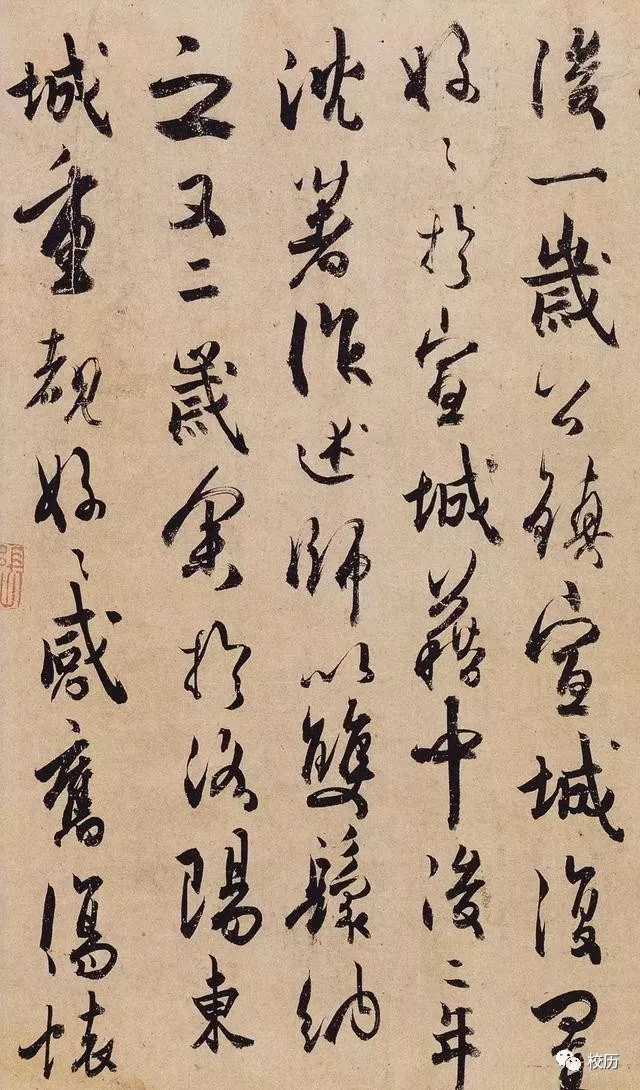 後一歲公鎮宣城復置
好〻於宣城籍中後二年
沈著作述師以雙鬟納
之又二歲余於洛陽東
城重覩好〻感舊傷懷
校历